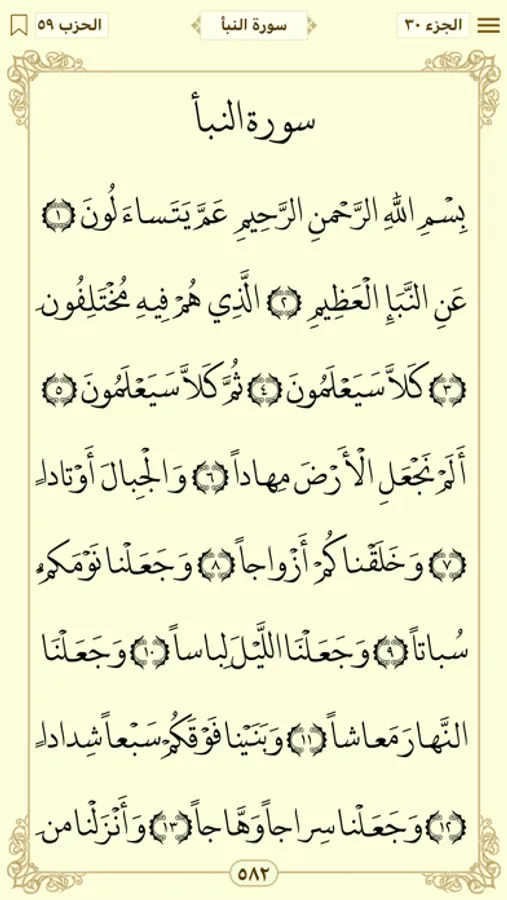 الجزء ٣٠ سورة النبأ الحزب ٥٩
سورة النبأ
بِسْمِ اللهِ الرَّحْمنِ الرَّحِيمِ عَمَّ يَتَساءَلُونَ ﴿١﴾
عَنِ النَّبَإِ الْعَظِيمِ ﴿٢﴾ الَّذِي هُمْ فِيهِ مُخْتَلِفُونَ
﴿٣﴾ كَلاَّ سَيَعْلَمُونَ ﴿٤﴾ ثُمَّ كَلاَّ سَيَعْلَمُونَ ﴿٥﴾
أَلَمْ نَجْعَلِ الْأَرْضَ مِهاداً ﴿٦﴾ وَالْجِبالَ أَوْتاداً
﴿٧﴾ وَخَلَقْناكُمْ أَزْواجاً ﴿٨﴾ وَجَعَلْنا نَوْمَكُمْ
سُباتاً ﴿٩﴾ وَجَعَلْنَا اللَّيْلَ لِباساً ﴿١٠﴾ وَجَعَلْنَا
النَّهارَ مَعاشاً ﴿١١﴾ وَبَنَيْنا فَوْقَكُمْ سَبْعاً شِداداً
﴿١٢﴾ وَجَعَلْنا سِراجاً وَهَّاجاً ﴿١٣﴾ وَأَنْزَلْنا مِنَ
٥٨٢